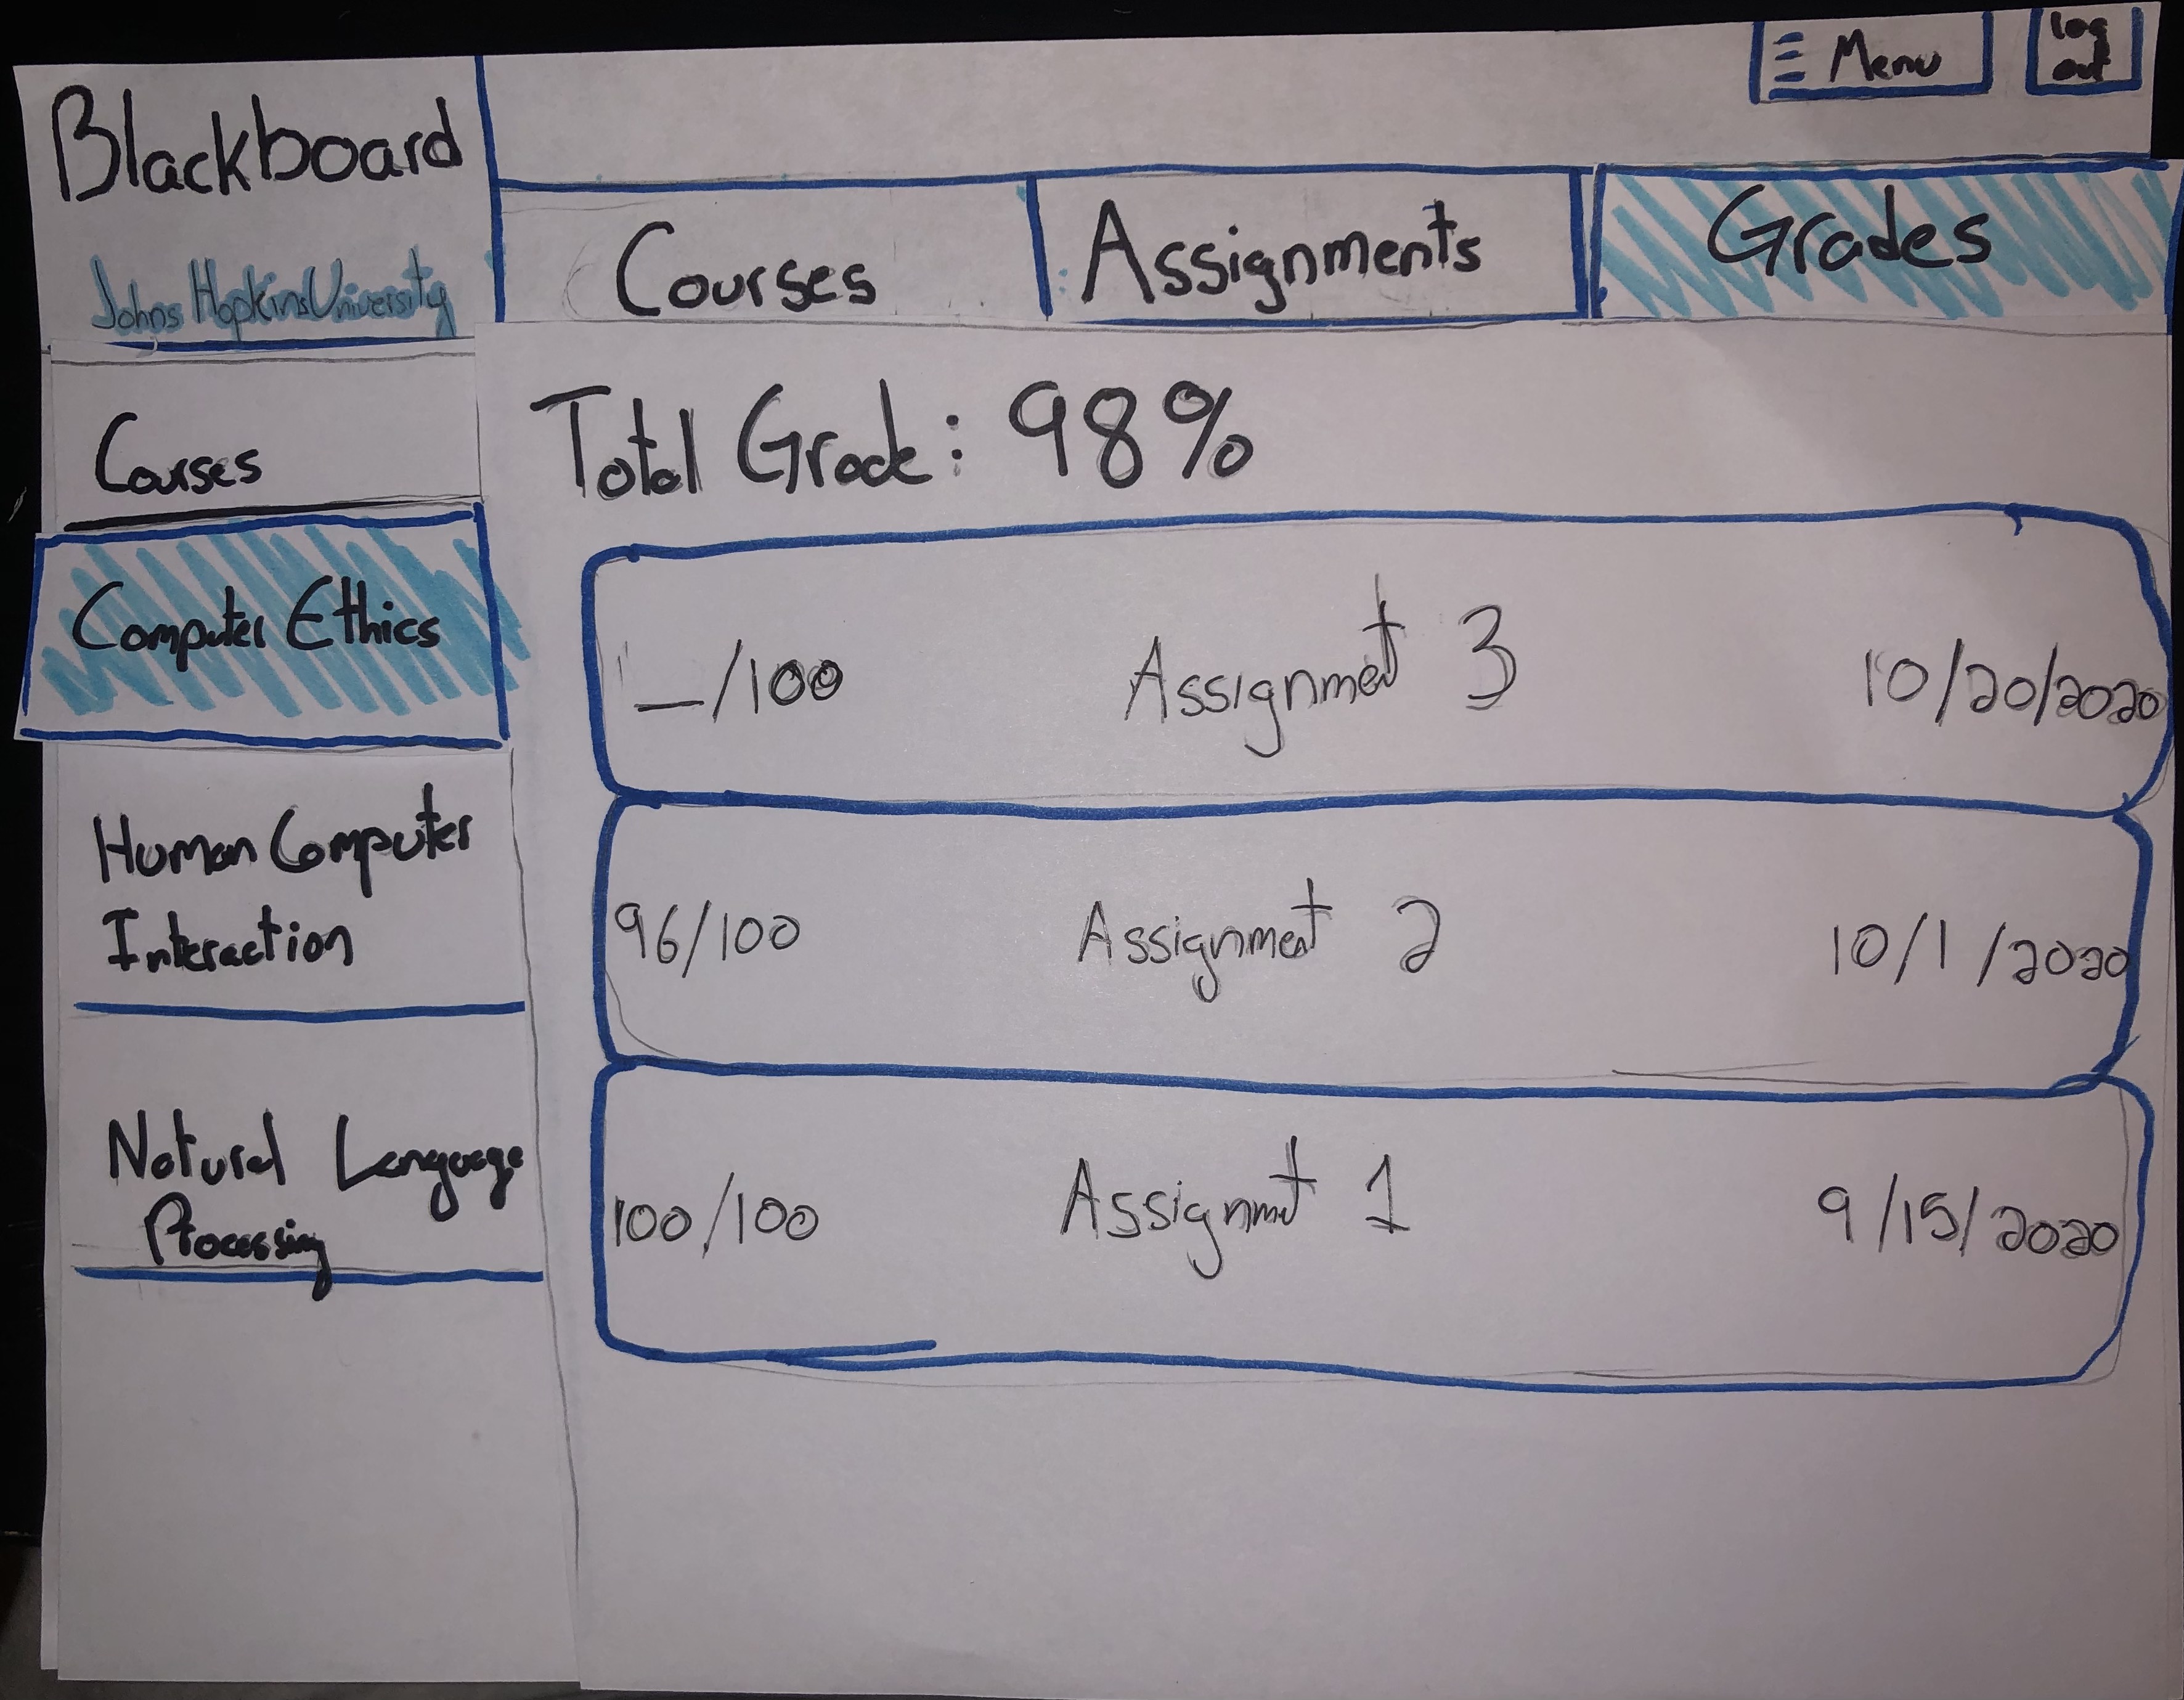 Menu
log
out
Blackboard
Johns Hopkins University
Courses
Assignments
Grades
Courses
Computer Ethics
Human Computer
Interaction
Natural Language
Processing
Total Grade: 98%
_/100 Assignment 3 10/20/2020
96/100 Assignment 2 10/1/2020
100/100 Assignmt 1 9/15/2020